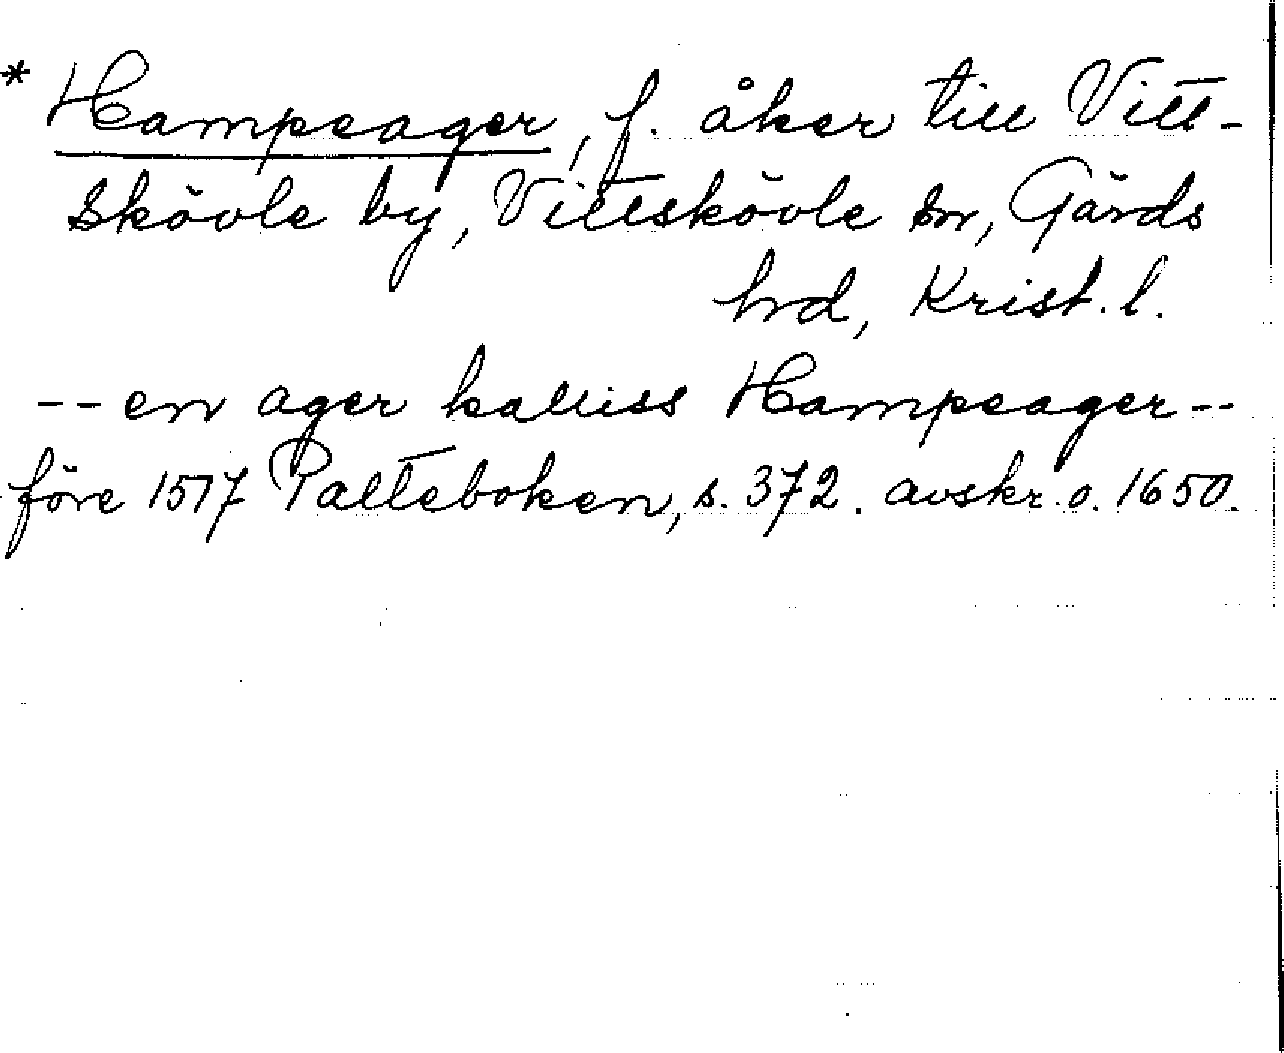 * Hampeager, f. åker till Vitt-
skövle by, Vittskövle sn, Gärds
hd, Krist. l.
-- en ager kalliss Hampeager --
före 1517 Palteboken, s. 372. avskr. o. 1650.